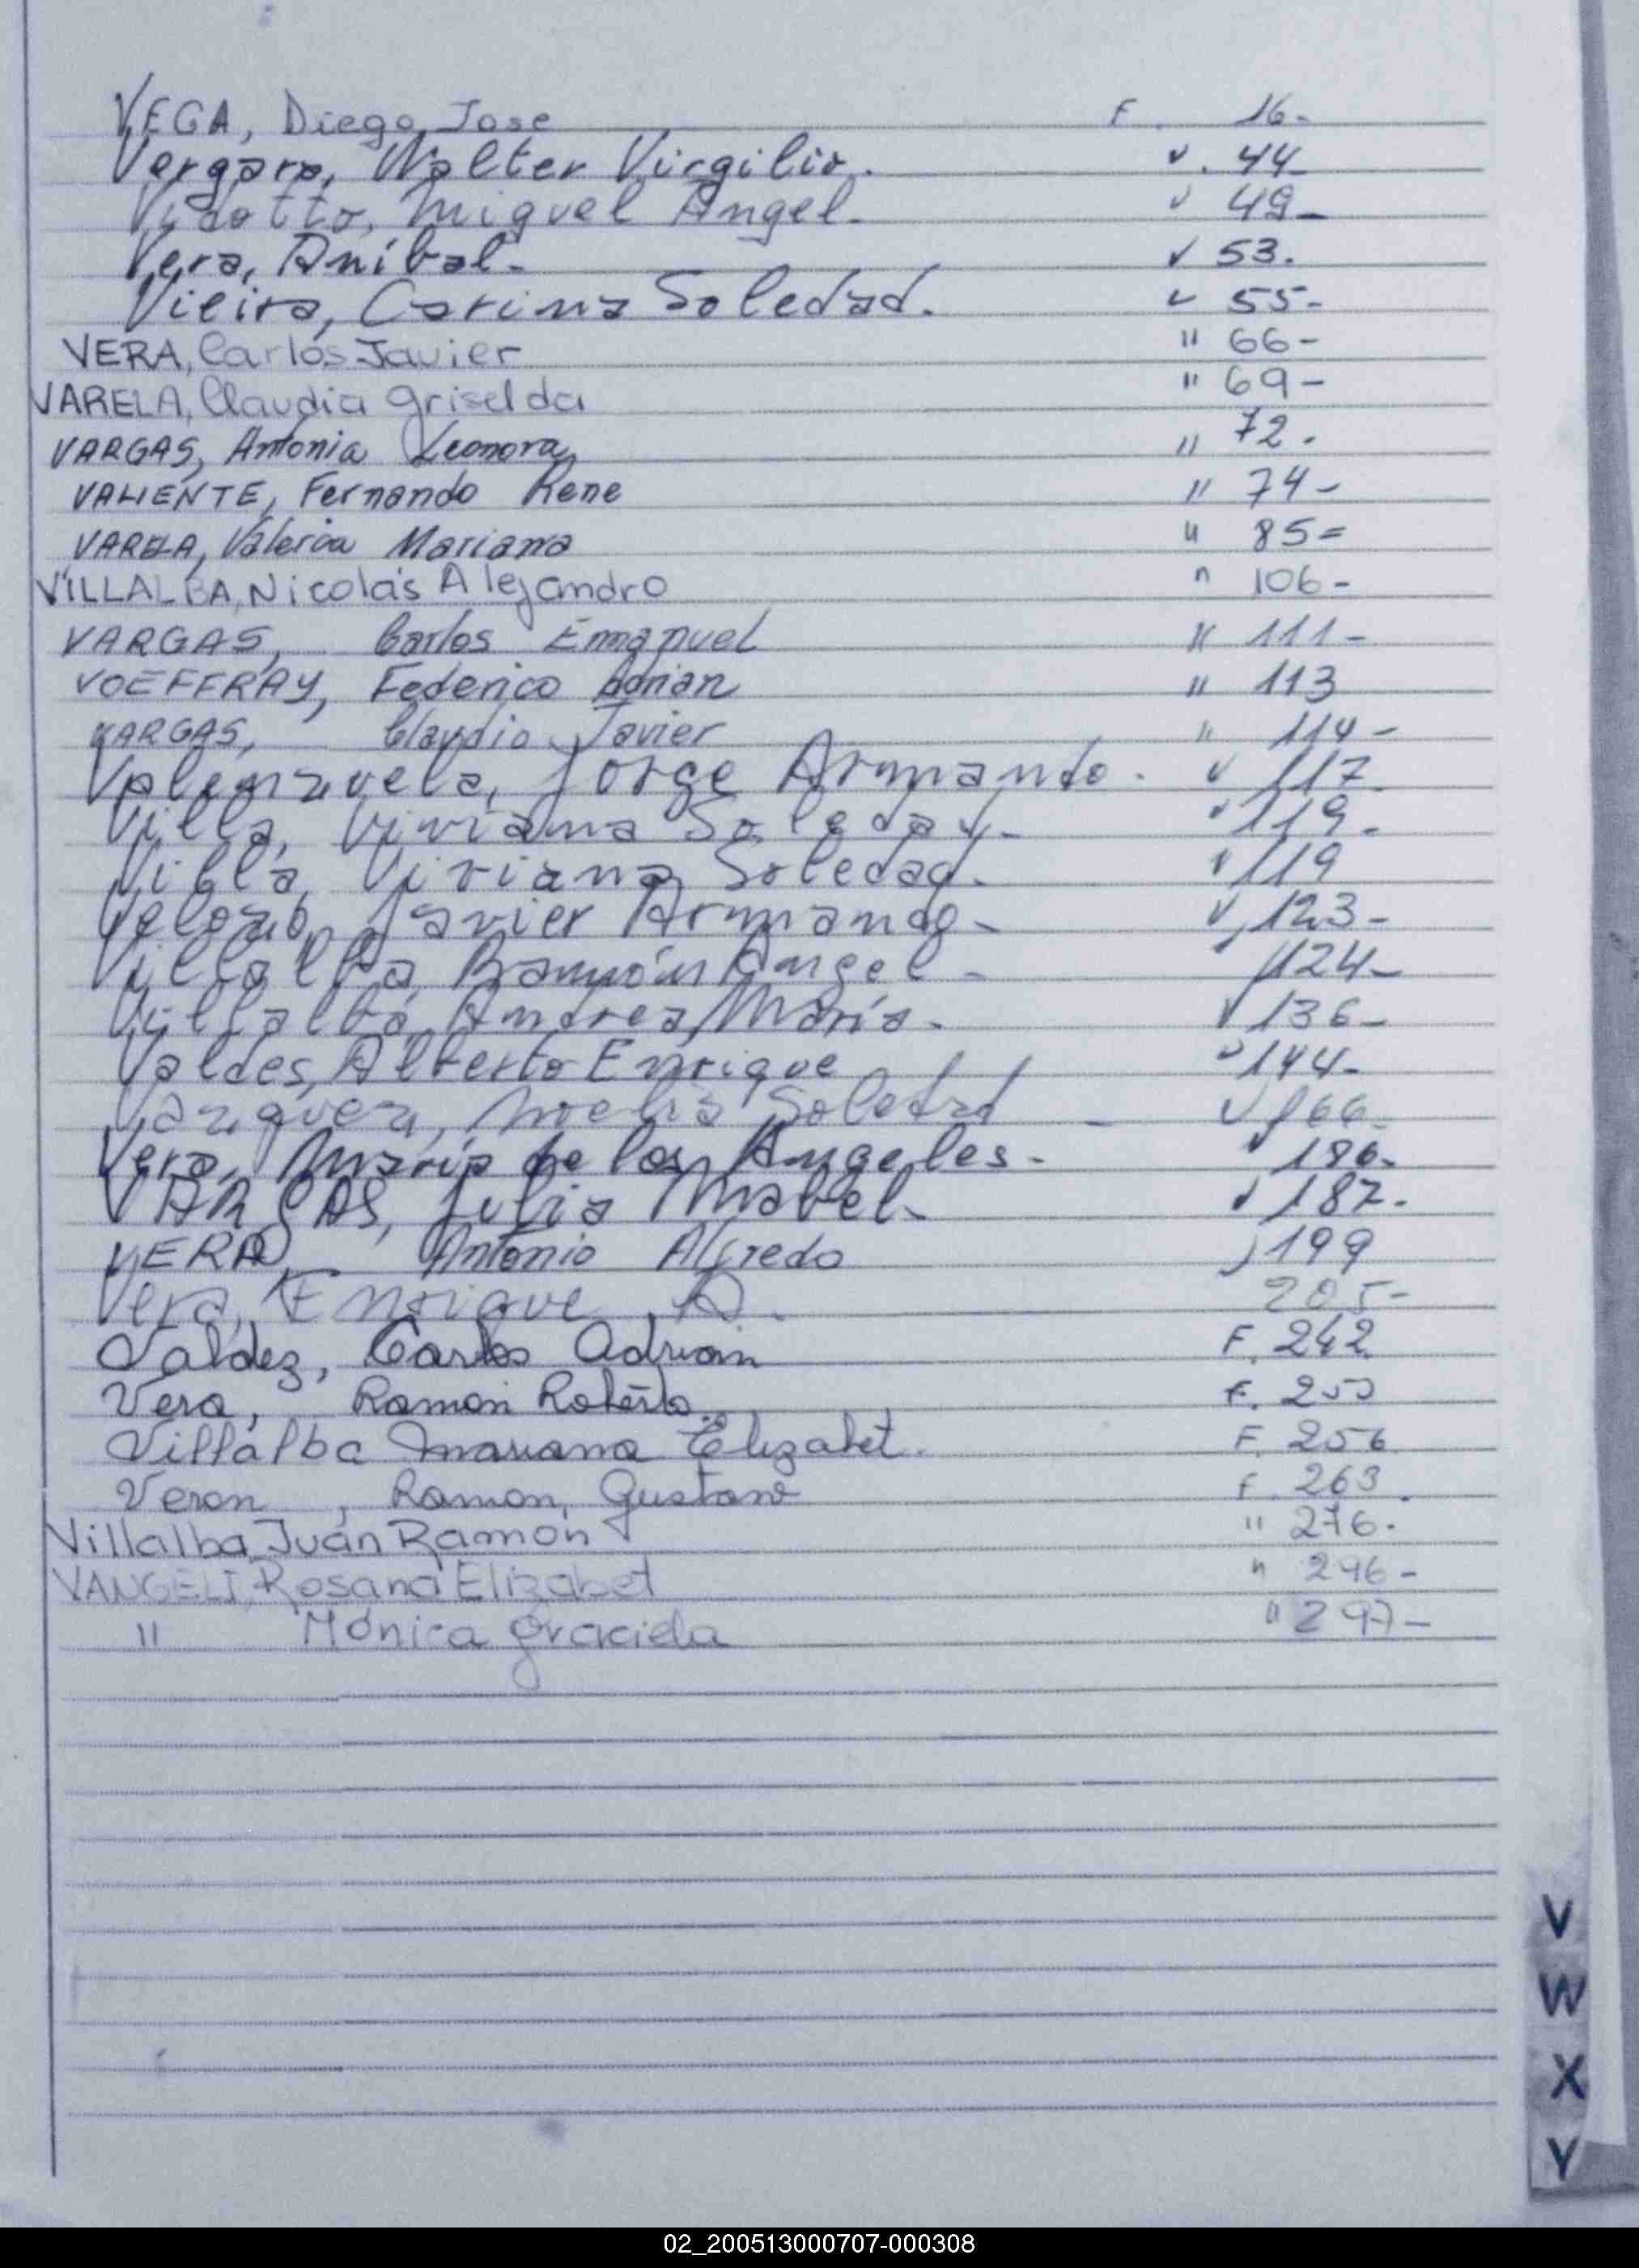 VEGA, Diego Jose F. 16-
Vergara, Walter Virgilio. " . 44-
Vidotto, Miguel Angel- " 49-
Vera, Anibal- " 53.
Vieira, Carina Soledad. " 55-
VERA, Carlos Javier " 66-
VARELA, Claudia Griselda " 69-
VARGAS, Antonia Leonora " 72.
VALIENTE, Fernando Rene " 74-
VARELA, Valeria Mariana " 85=
VILLALBA, Nicolás Alejandro " 106-
VARGAS, Carlos Emmanuel " 111-
VOEFFRAY, Federico Adrian " 113
VARGAS, Claudio Javier " 114-
Valenzuela, Jorge Armando. " 117
Villa, Viviana Soledad- " 119.
Villa, Viviana Soledad. " 119
Velozo, Javier Armando- " 123-
Villalba, Ramón Angel- " 124-
Villalba, Andrea María. " 136-
Valdes, Alberto Enrique " 144-
Vazquez, Noelia Soledad - " 166.
Vera, María de los Angeles. " 186-
VARGAS, Julia Mabel- " 187.
VERA, Antonio Alfredo " 199
Vera, Enrique A. 205-
Valdez, Carlos Adrian F. 242
Vera, Ramón Roberto. F. 250
Villalba Mariana Elizabet. F. 256
Veron, Ramon, Gustavo F. 263.
Villalba, Juán Ramón " 276.
VANGELI, Rosana Elizabet " 296-
" Mónica Graciela " 297-
V
W
X
Y
02_200513000707-000308